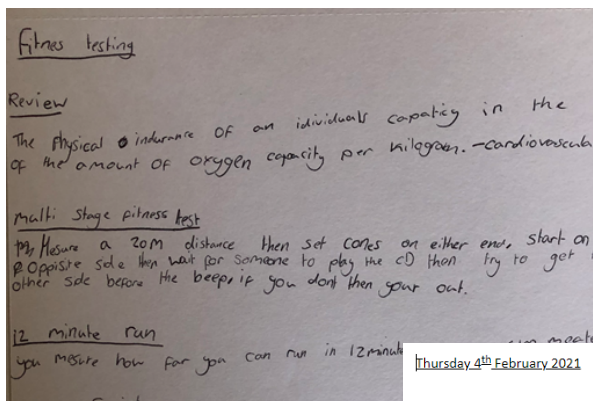 Fitnes testing
Review
The Physical indurance of an idividuals capaticy in the
of the amount of oxygen capacity per kilogram. -cardiovascula
multi stage fitness test
Mesure a 20m distance then set cones on either end. Start on
oppisite side then wait for someone to play the CD then try to get
other side before the beep, if you dont then your out.
12 minute run
you mesure how far you can run in 12 minut
Thursday 4th February 2021